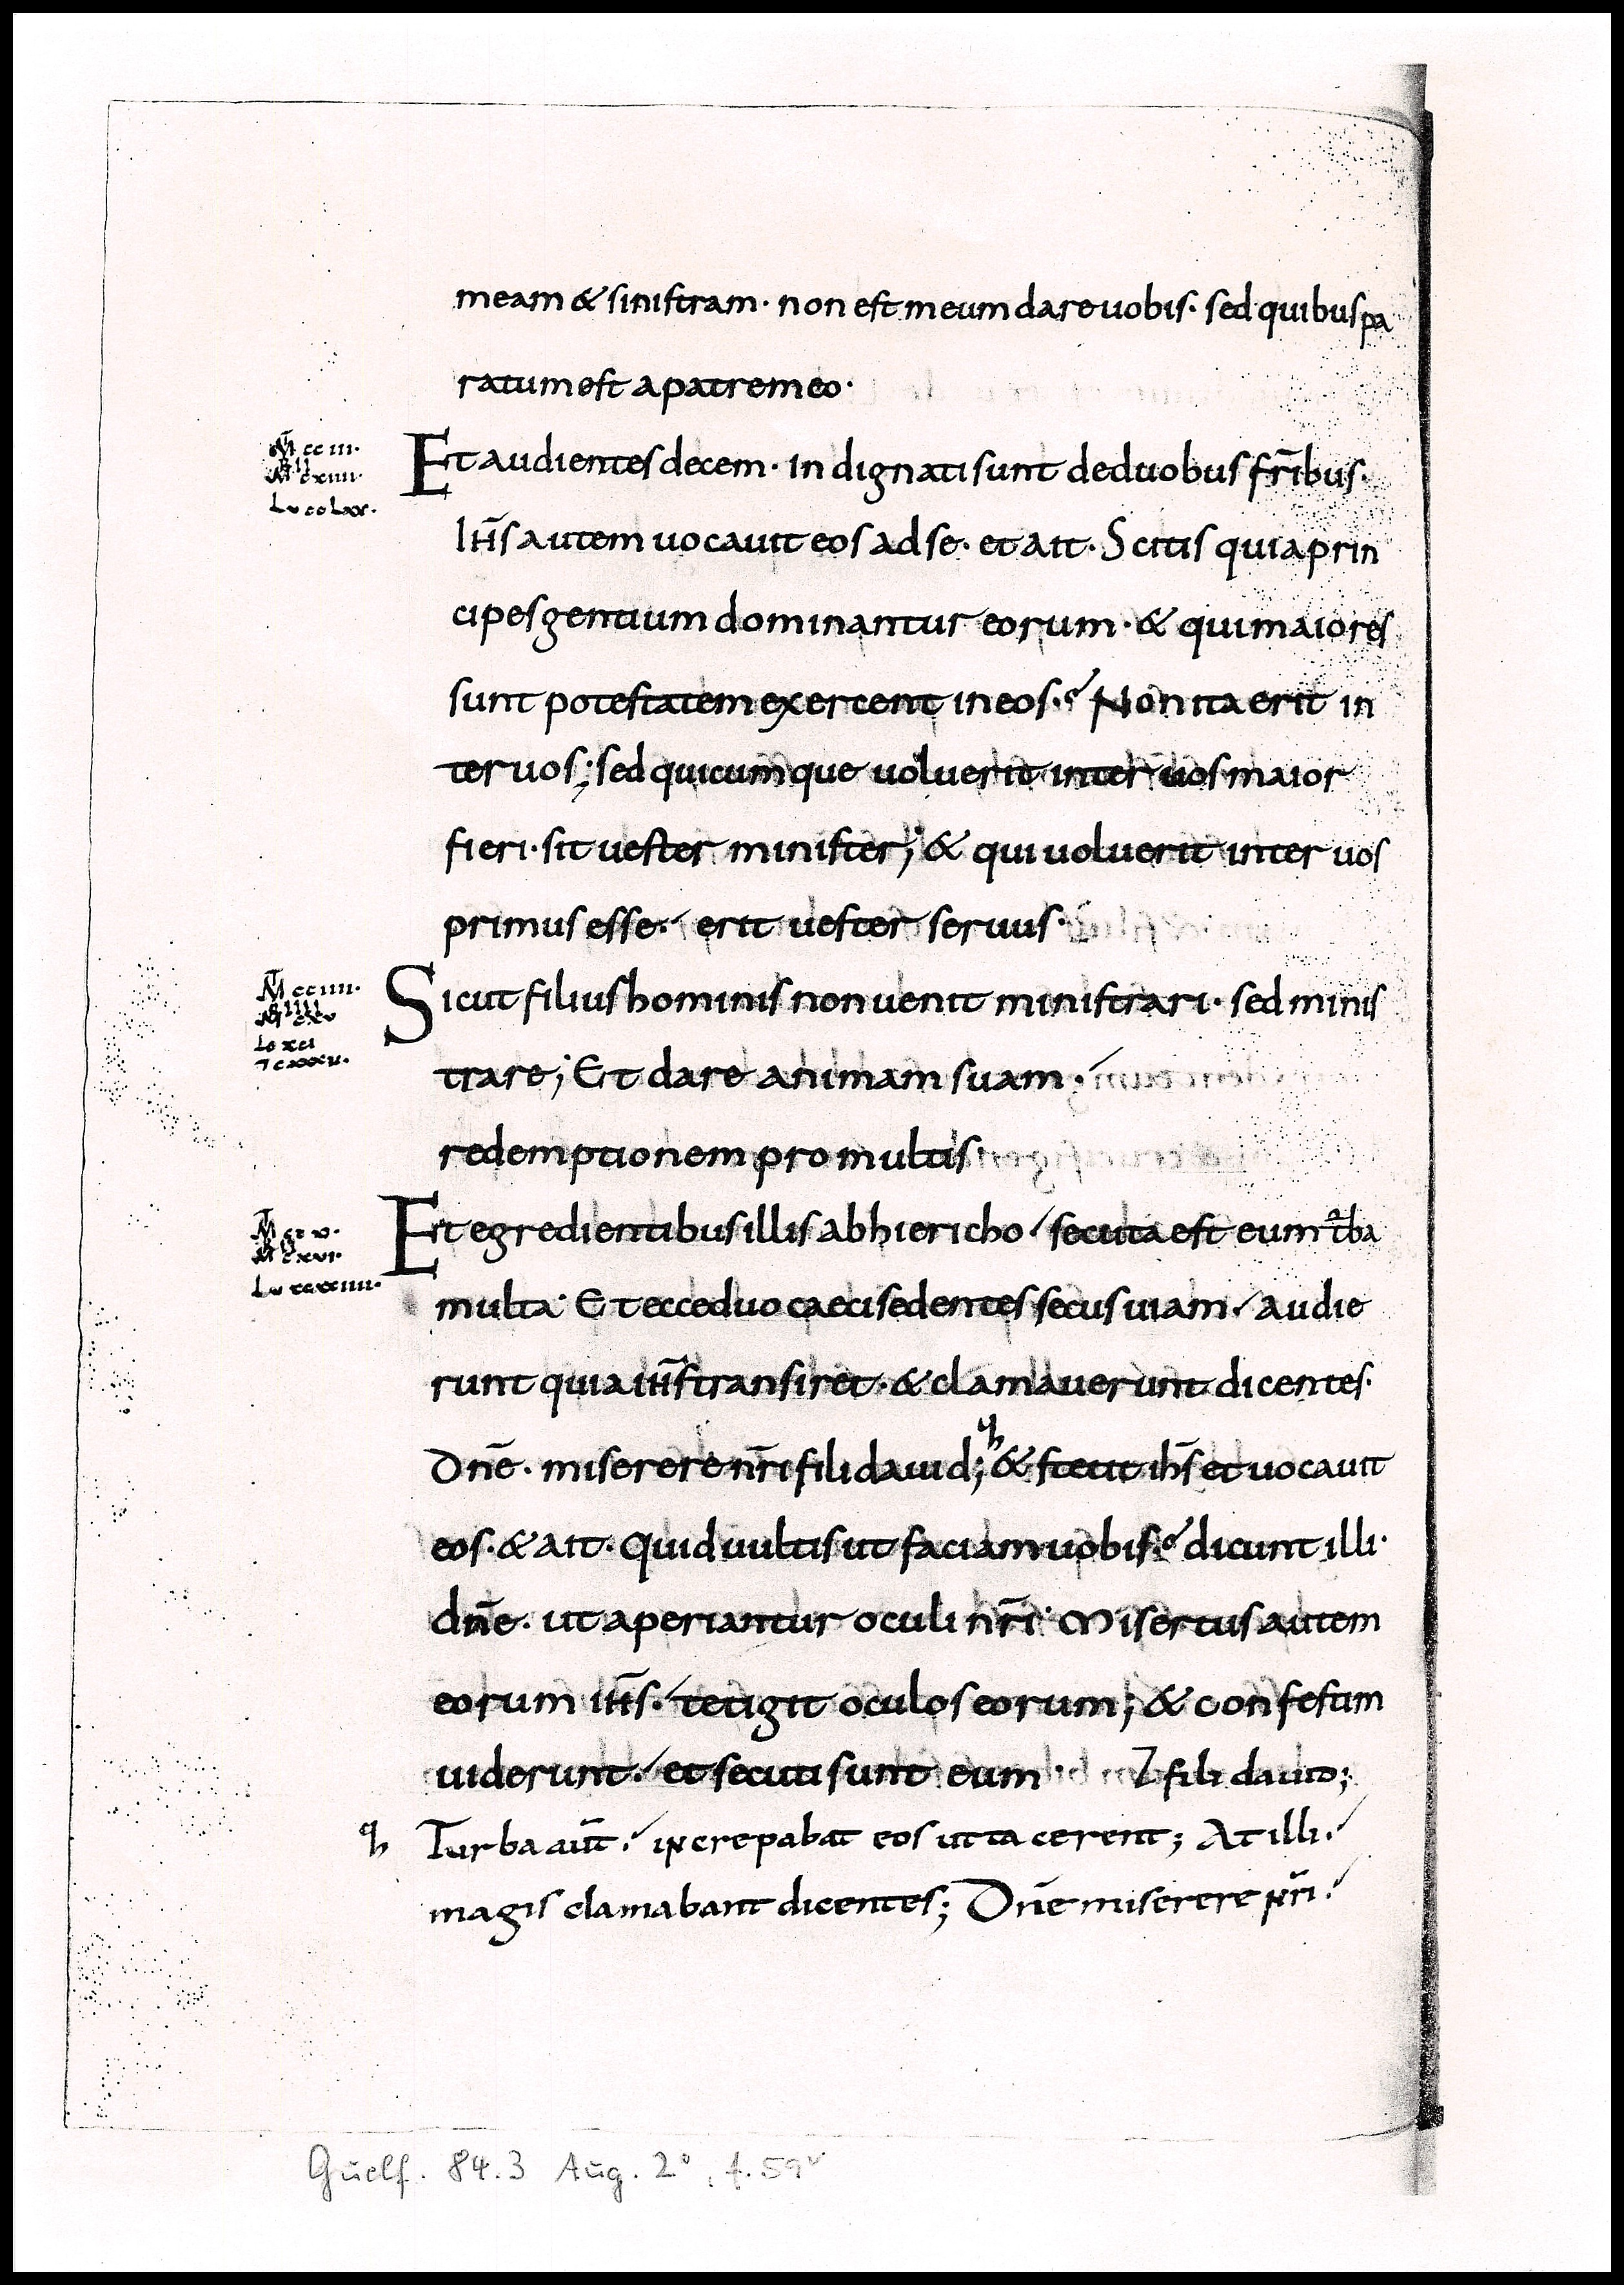 meam & sinistram· non est meum dare uobis· sed quibus pa
ratum est a patre meo·
M̄ cciii·
Et audientes decem· indignati sunt de duobus fr̄ibus·
M̄ cxiiii·
Lu cclxx·
Ih̄s autem uocauit eos ad se· et ait· Scitis quia prin
cipes gentium dominantur eorum· & qui maiores
sunt potestatem exercent in eos· Non ita erit in
ter uos; sed quicumque uoluerit inter uos maior
fieri· sit uester minister; & qui uoluerit inter uos
primus esse· erit uester seruus·
M̄ cciiii·
Sicut filius hominis non uenit ministrari· sed minis
M̄ cxv
trare; Et dare animam suam·
redemptionem pro multis·
M̄ ccv·
Et egredientibus illis ab hiericho· secuta est eum t̄ba
M̄ cxvi·
multa· Et ecce duo caeci sedentes secus uiam· audie
runt quia ih̄s transiret· & clamauerunt dicentes·
Dn̄e· miserere nr̄i fili dauid; & stetit ih̄s et uocauit
eos· & ait· Quid uultis ut faciam uobis· dicunt illi·
dn̄e· ut aperiantur oculi nr̄i· Misertus autem
eorum ih̄s· tetigit oculos eorum; & confestim
uiderunt· et secuti sunt eum· fili dauid;
Turba aut̄· increpabat eos ut tacerent; At illi·
magis clamabant dicentes; Dn̄e miserere nr̄i·
Guelf. 84.3 Aug. 2°, f. 59v